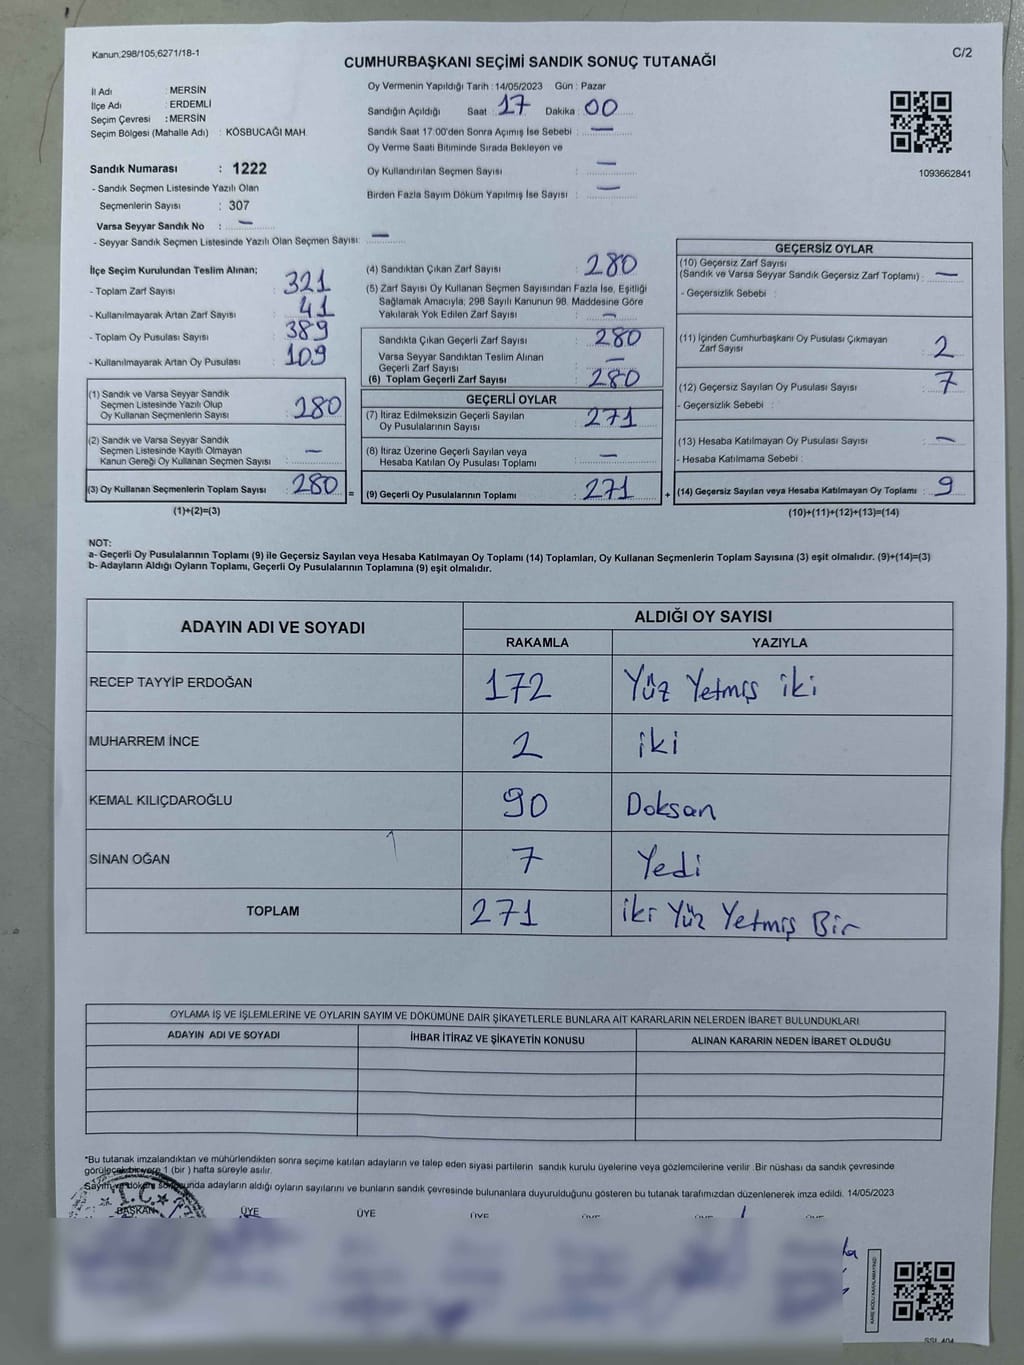 Kanun:298/105,6271/18-1
C/2
CUMHURBAŞKANI SEÇİMİ SANDIK SONUÇ TUTANAĞI
İl Adı : MERSİN
İlçe Adı : ERDEMLİ
Seçim Çevresi : MERSİN
Seçim Bölgesi (Mahalle Adı) : KÖSBUCAĞI MAH.
Oy Vermenin Yapıldığı Tarih : 14/05/2023 Gün : Pazar
Sandığın Açıldığı Saat : 17 Dakika : 00
Sandık Saat 17:00'den Sonra Açımış İse Sebebi : —
Oy Verme Saati Bitiminde Sırada Bekleyen ve
Oy Kullandırılan Seçmen Sayısı : —
Birden Fazla Sayım Döküm Yapılmış İse Sayısı : —
1093662841
Sandık Numarası : 1222
- Sandık Seçmen Listesinde Yazılı Olan
Seçmenlerin Sayısı : 307
Varsa Seyyar Sandık No : —
- Seyyar Sandık Seçmen Listesinde Yazılı Olan Seçmen Sayısı: —
İlçe Seçim Kurulundan Teslim Alınan;
- Toplam Zarf Sayısı : 321
- Kullanılmayarak Artan Zarf Sayısı : 41
- Toplam Oy Pusulası Sayısı : 389
- Kullanılmayarak Artan Oy Pusulası : 109
(1) Sandık ve Varsa Seyyar Sandık
Seçmen Listesinde Yazılı Olup
Oy Kullanan Seçmenlerin Sayısı : 280
(2) Sandık ve Varsa Seyyar Sandık
Seçmen Listesinde Kayıtlı Olmayan
Kanun Gereği Oy Kullanan Seçmen Sayısı : —
(3) Oy Kullanan Seçmenlerin Toplam Sayısı : 280 =
(1)+(2)=(3)
(4) Sandıktan Çıkan Zarf Sayısı : 280
(5) Zarf Sayısı Oy Kullanan Seçmen Sayısından Fazla İse, Eşitliği
Sağlamak Amacıyla; 298 Sayılı Kanunun 98. Maddesine Göre
Yakılarak Yok Edilen Zarf Sayısı : —
Sandıkta Çıkan Geçerli Zarf Sayısı : 280
Varsa Seyyar Sandıktan Teslim Alınan
Geçerli Zarf Sayısı : —
(6) Toplam Geçerli Zarf Sayısı : 280
GEÇERLİ OYLAR
(7) İtiraz Edilmeksizin Geçerli Sayılan
Oy Pusulalarının Sayısı : 271
(8) İtiraz Üzerine Geçerli Sayılan veya
Hesaba Katılan Oy Pusulası Toplamı : —
(9) Geçerli Oy Pusulalarının Toplamı : 271 +
GEÇERSİZ OYLAR
(10) Geçersiz Zarf Sayısı
(Sandık ve Varsa Seyyar Sandık Geçersiz Zarf Toplamı) : —
- Geçersizlik Sebebi :
(11) İçinden Cumhurbaşkanı Oy Pusulası Çıkmayan
Zarf Sayısı : 2
(12) Geçersiz Sayılan Oy Pusulası Sayısı : 7
- Geçersizlik Sebebi :
(13) Hesaba Katılmayan Oy Pusulası Sayısı : —
- Hesaba Katılmama Sebebi :
(14) Geçersiz Sayılan veya Hesaba Katılmayan Oy Toplamı : 9
(10)+(11)+(12)+(13)=(14)
NOT:
a- Geçerli Oy Pusulalarının Toplamı (9) ile Geçersiz Sayılan veya Hesaba Katılmayan Oy Toplamı (14) Toplamları, Oy Kullanan Seçmenlerin Toplam Sayısına (3) eşit olmalıdır. (9)+(14)=(3)
b- Adayların Aldığı Oyların Toplamı, Geçerli Oy Pusulalarının Toplamına (9) eşit olmalıdır.
ADAYIN ADI VE SOYADI ALDIĞI OY SAYISI
RAKAMLA YAZIYLA
RECEP TAYYİP ERDOĞAN 172 Yüz Yetmiş iki
MUHARREM İNCE 2 iki
KEMAL KILIÇDAROĞLU 90 Doksan
SİNAN OĞAN 7 Yedi
TOPLAM 271 iki Yüz Yetmiş Bir
OYLAMA İŞ VE İŞLEMLERİNE VE OYLARIN SAYIM VE DÖKÜMÜNE DAİR ŞİKAYETLERLE BUNLARA AİT KARARLARIN NELERDEN İBARET BULUNDUKLARI
ADAYIN ADI VE SOYADI İHBAR İTİRAZ VE ŞİKAYETİN KONUSU ALINAN KARARIN NEDEN İBARET OLDUĞU
*Bu tutanak imzalandıktan ve mühürlendikten sonra seçime katılan adayların ve talep eden siyasi partilerin sandık kurulu üyelerine veya gözlemcilerine verilir. Bir nüshası da sandık çevresinde
görülecek bir yere 1 (bir ) hafta süreyle asılır.
Sayım ve döküm sonucunda adayların aldığı oyların sayılarını ve bunların sandık çevresinde bulunanlara duyurulduğunu gösteren bu tutanak tarafımızdan düzenlenerek imza edildi. 14/05/2023
T.C.
BAŞKAN ÜYE ÜYE ÜYE